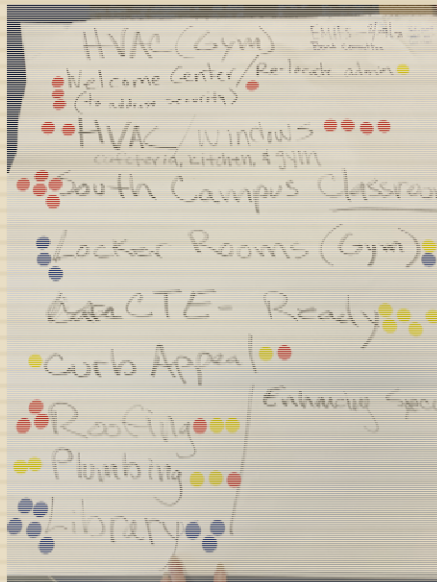 HVAC (Gym)
Welcome Center / Relocate admin
(to address security)
HVAC / Windows
Cafeteria, kitchen, & gym
South Campus Classroo
Locker Rooms (Gym)
CTE - Ready
Curb Appeal
Enhancing Spec
Roofing
Plumbing
Library